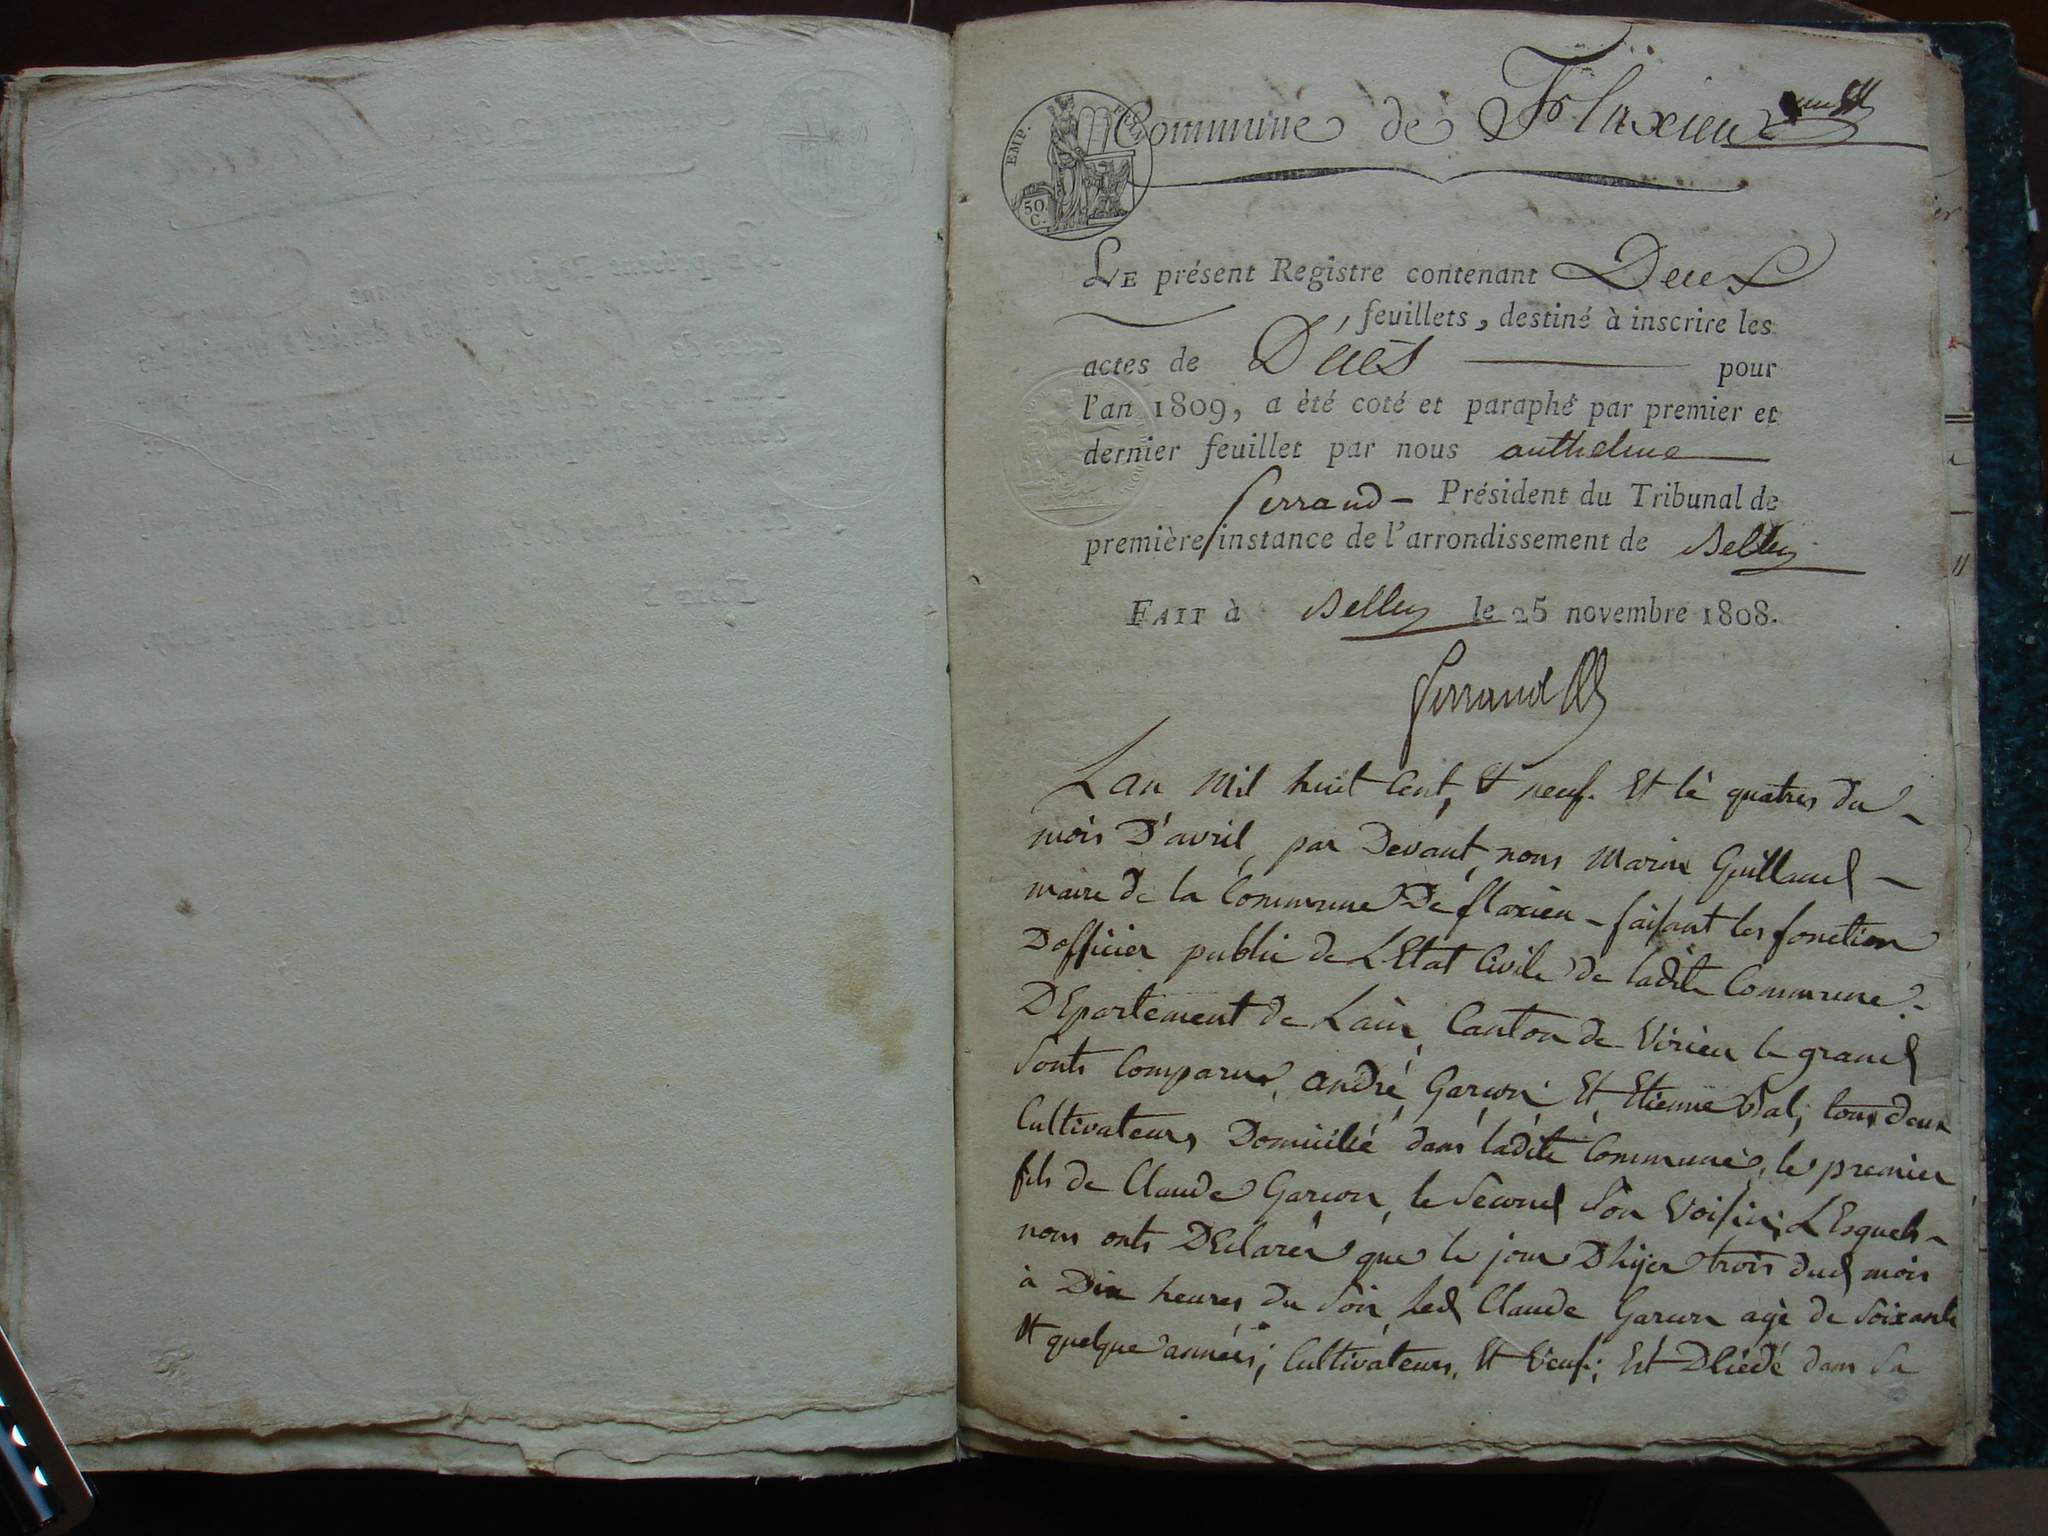 Commune de Flaxieu
EMP.
50
C.
LE présent Registre contenant Deux
feuillets, destiné à inscrire les
actes de Décès pour
l'an 1809, a été coté et paraphé par premier et
dernier feuillet par nous anthelme
ferrand Président du Tribunal de
première instance de l'arrondissement de Belley
FAIT à Belley le 25 novembre 1808.
ferrand
Lan mil huit Cent, & neuf. Et le quatres du
mois D'avril, par Devant nous marin Guilland
maire de la Commune De flaxieu - faisant les fonction
Dofficier public de LEtat Civile de ladite Commune
DEpartement de Lain, Canton de Virieu le grand
Sonts Comparus, andré Garçon Et Etienne Bal, tous deux
Cultivateurs Domicilié dans ladite Commune, le premier
fils de Claude Garcon, le Second Son Voisin, LEsquels
nous onts DEclarés que le jour Dhyer trois dud mois
à Dix heures du Soir, Led Claude Garcon agé de Soixante
et quelque années; Cultivateurs. Et Veuf; Est Décédé dans Sa